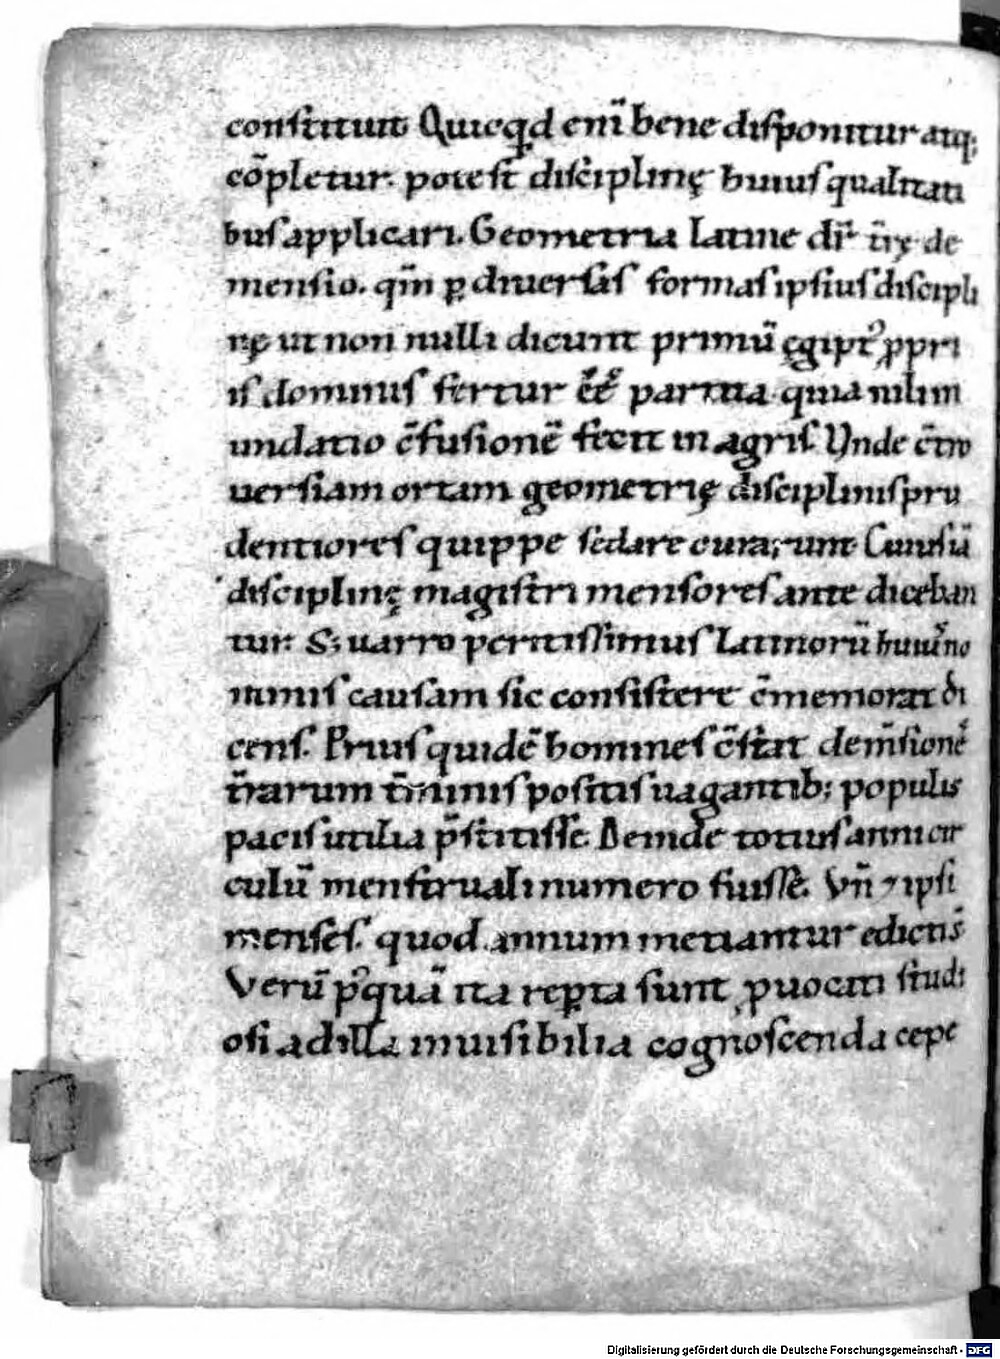 constituit Quicqd enī bene disponitur atq;
cōpletur. potest disciplinę huius qualitati
bus applicari. Geometria latine dr̄ tr̄ę de
mensio. qm̄ ꝑ diuersas formas ipsius discipli
nę ut non nulli dicunt primū ęgipt᷒ ꝓpri
is dominis fertur eē partita quia nilim
undatio c̄fusionē fecit in agris. Unde c̄tro
uersiam ortam geometrię disciplinis pru
dentiores quippe sedare curarunt Cuius iā
disciplinę magistri mensores ante diceban
tur. S; uarro peritissimus Latinorū huius no
minis causam sic consistere c̄memorat di
cens. Prius quidē homines c̄stat dem̄sionē
tr̄arum tm̄inis positis uagantib; populis
pacis utilia p̄stitisse. Deinde totius anni cir
culū menstruali numero fuisse. Vn̄ ⁊ ipsi
menses. quod annum metiantur edicti s̄
Verū p᷒quā ita reꝑta sunt ꝓuocati studi
osi ad illa inuisibilia cognoscenda cepe
Digitalisierung gefördert durch die Deutsche Forschungsgemeinschaft - DFG